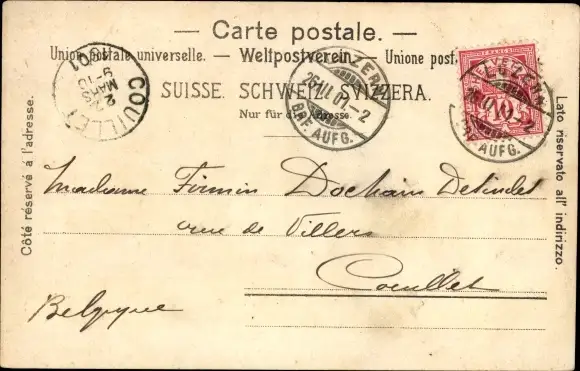 — Carte postale. —
Union postale universelle. — Weltpostverein. — Unione post.
SUISSE. SCHWEIZ. SVIZZERA.
Nur für die Adresse.
Côté réservé à l'adresse.
Lato riservato all' indirizzo.
COUILLET
9-10
MARS
2
1901
LUZERN
26.III.01.-2
BRF. AUFG.
FRANCO
10
LUZERN
01.-2
BRF. AUFG.
Madame Firmin Dochain Delindet
rue de Villers
Couillet
Belgique